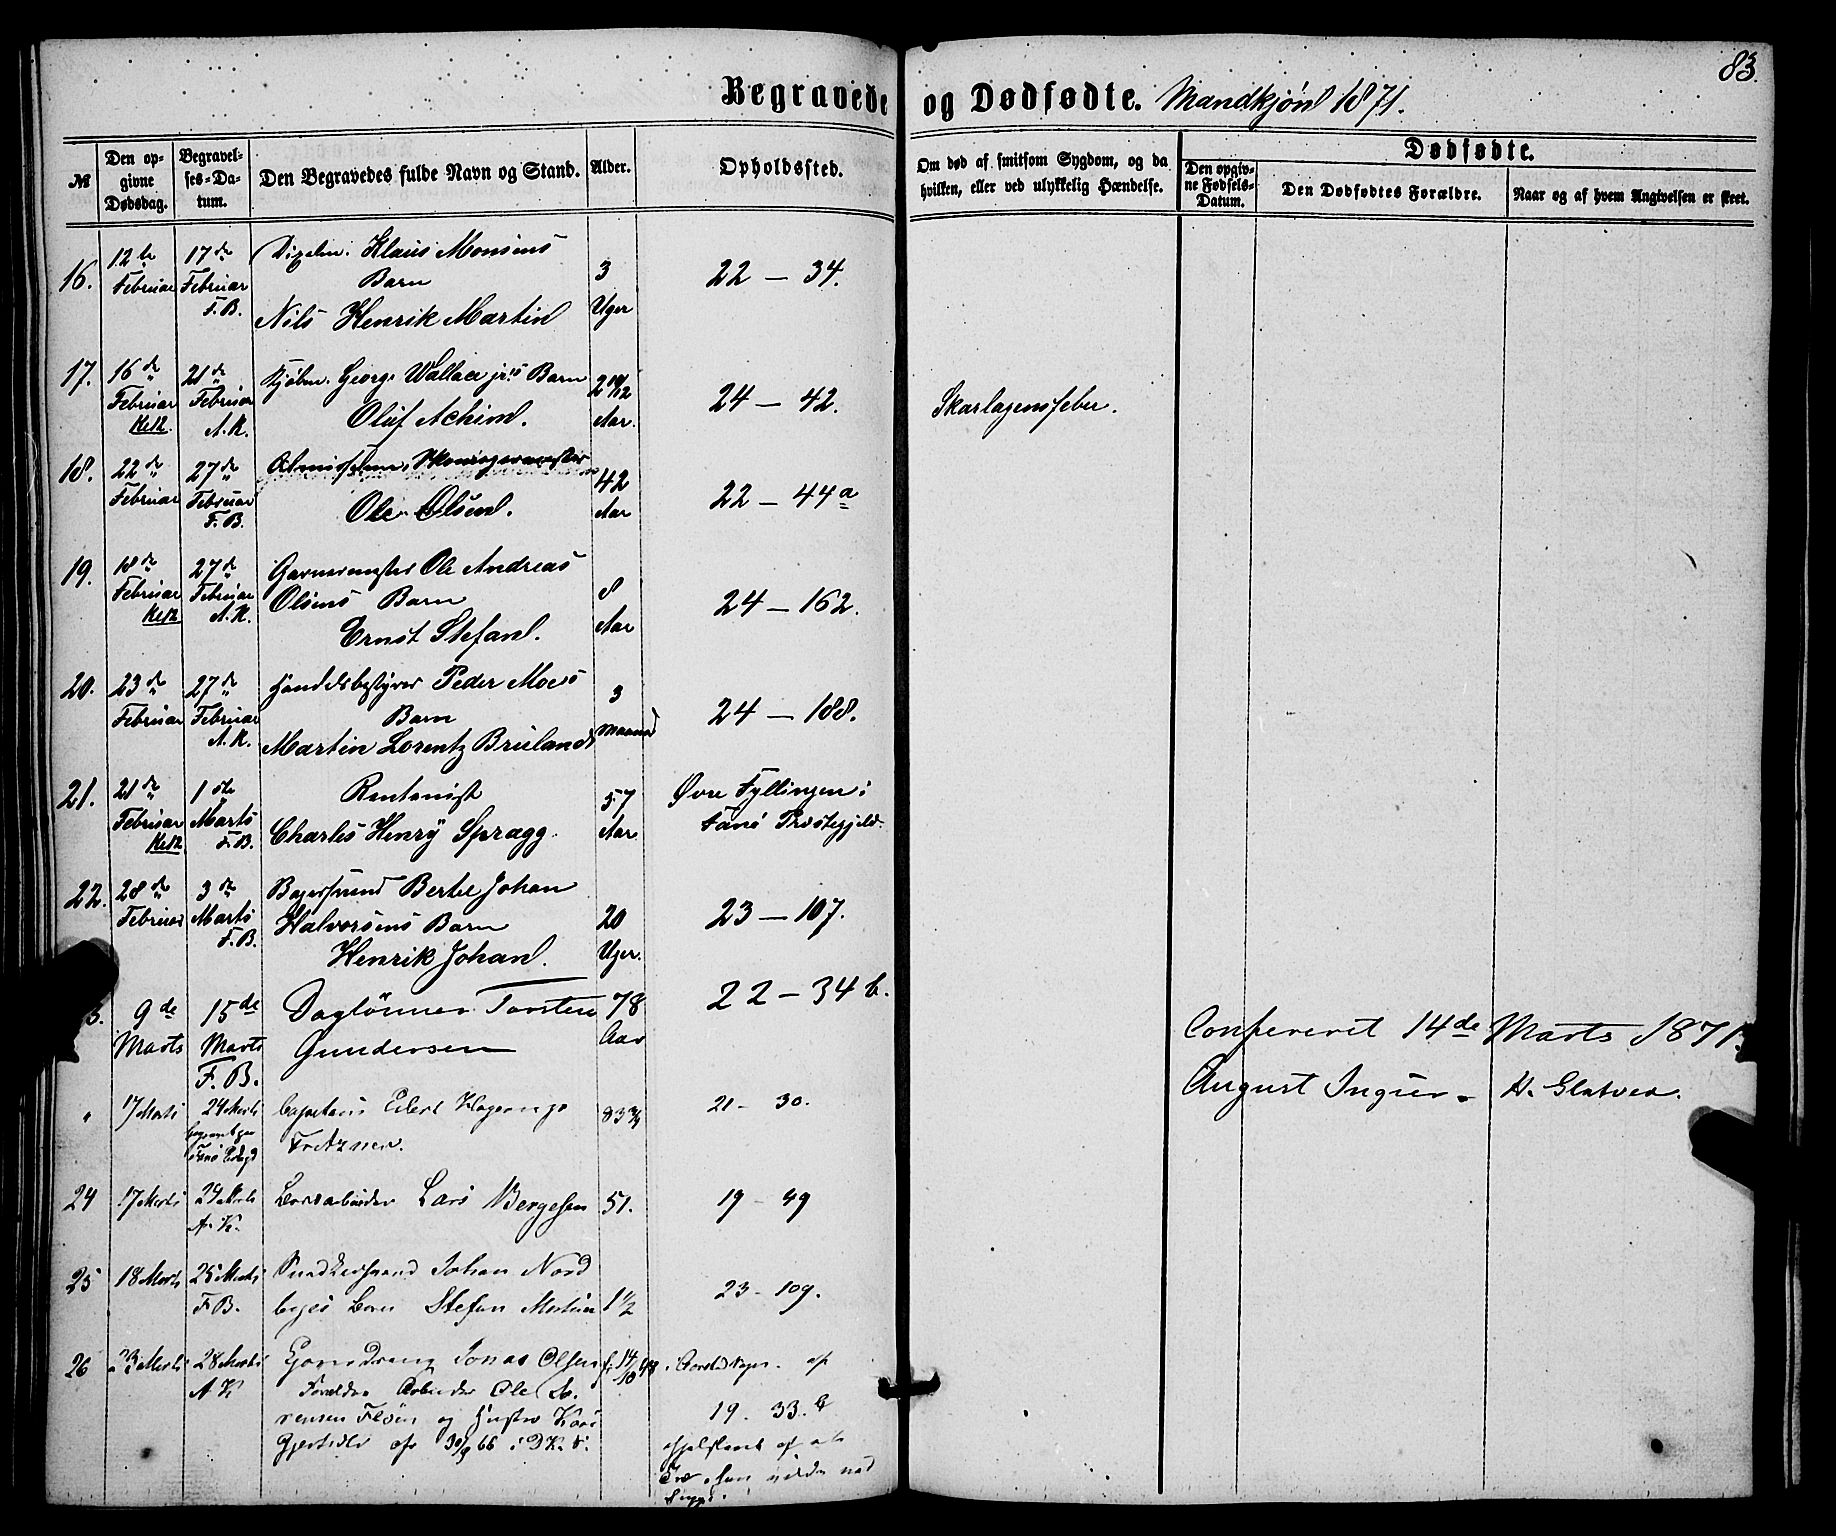 83.
Begravede og Dødfødte. Mandkjøn 1871.
№
Den opgivne Dødsdag.
Begravelses-Datum.
Den Begravedes fulde Navn og Stand.
Alder.
Opholdssted.
Om død af smitsom Sygdom, og da hvilken, eller ved ulykkelig Hændelse.
Dødfødte.
Den opgivne Fødsels-Datum.
Den Dødfødtes Forældre.
Naar og af hvem Angivelsen er skeet.
16. 12te Februar 17de Februar F.B.
Klaus Monsens
Barn
Nils Henrik Martin
3 Uger
22 — 34.
17. 16de Februar 21de Februar A.K.
Kjøbm. Georg Wallace jr's Barn
Oluf Achim.
2 10/12 Aar.
24 — 42.
Skarlagensfeber.
18. 22de Februar 27de Februar F.B.
Ole Olsen.
42 Aar
22 — 44a
19. 18de Februar 27de Februar A.K.
Garvermester Ole Andreas
Olsens Barn
Ernst Stefan.
8 Aar
24 — 162.
20. 23de Februar 27de Februar A.K.
Handelsbestyrer Peder Moes
Barn
Martin Lorentz Bruland
3 Maaned
24 — 188.
21. 21de Februar 1ste Marts F.B.
Rentenist
Charles Henry Spragg.
57 Aar.
Øvre Fyllingen i
Fane Præstegjeld.
22. 28de Februar 3de Marts F.B.
Bagersvend Bertel Johan
Halvorsens Barn
Henrik Johan.
20 Uger.
23 — 107.
3. 9de Marts 15de Marts F.B.
Daglönner Torsten
Gundersen
78 Aar
22 — 34 b.
Confereret 14de Marts 1871.
August Ingier. H. Slatved.
" 17 Marts 24 Marts
Capitain Eilert Hagerup
Fritzner.
83 3/4
21 — 30.
24 17 Marts 24 Marts A.K.
Lars Bergesen
51.
19 — 49
25 18 Marts 25 Marts F.B.
Johan Nord
bergs Barn Stefan Martin
1 1/2
23 — 109.
26 23 Marts 28 Marts A K
Jonas Olsen
Forældre Arbeider Ole Sø-
rensen Fløen og Hustru Kari
Gjertsdtr
f. 14/10 48
19. 33. b